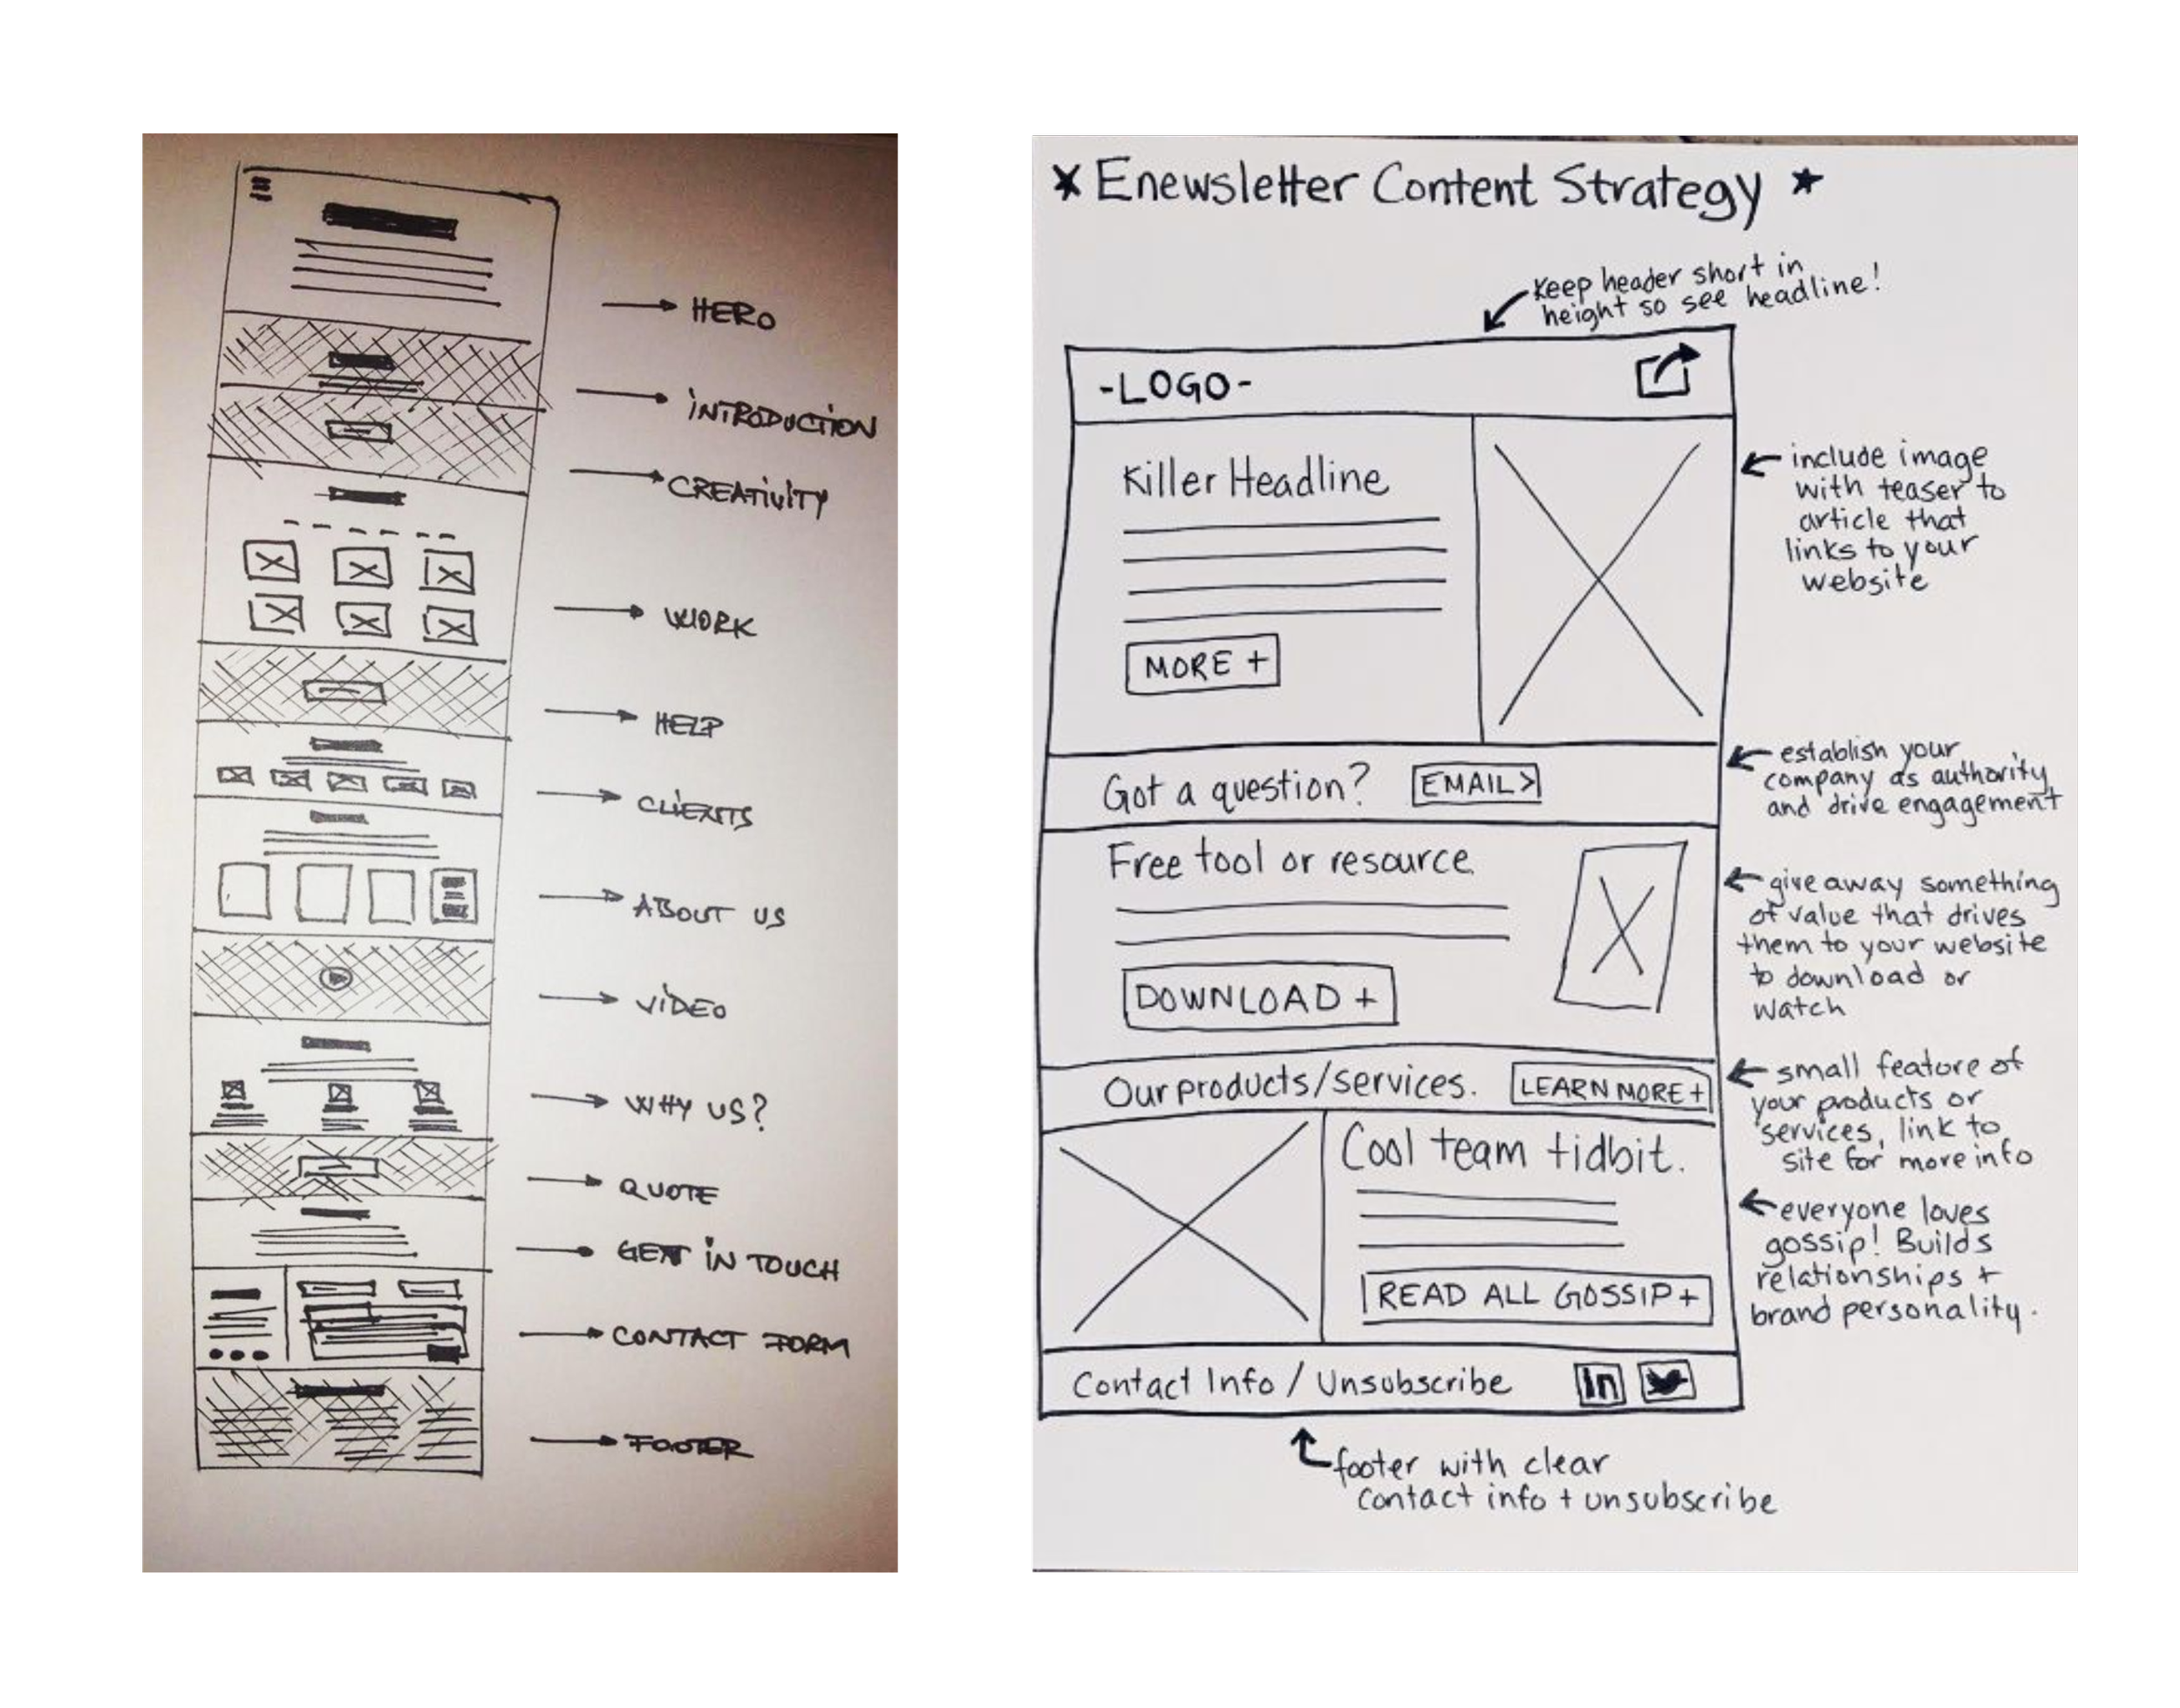 HERO
INTRODUCTION
CREATIVITY
WORK
HELP
CLIENTS
ABOUT US
VIDEO
WHY US?
QUOTE
GET IN TOUCH
CONTACT FORM
FOOTER
Enewsletter Content Strategy
Keep header short in
height so see headline!
-LOGO-
Killer Headline
MORE +
include image
with teaser to
article that
links to your
website
Got a question? EMAIL>
establish your
company as authority
and drive engagement
Free tool or resource
DOWNLOAD +
give away something
of value that drives
them to your website
to download or
watch
Our products/services. LEARN MORE+
small feature of
your products or
services, link to
site for more info
Cool team tidbit.
READ ALL GOSSIP+
everyone loves
gossip! Builds
relationships +
brand personality.
Contact Info / Unsubscribe in
footer with clear
contact info + unsubscribe